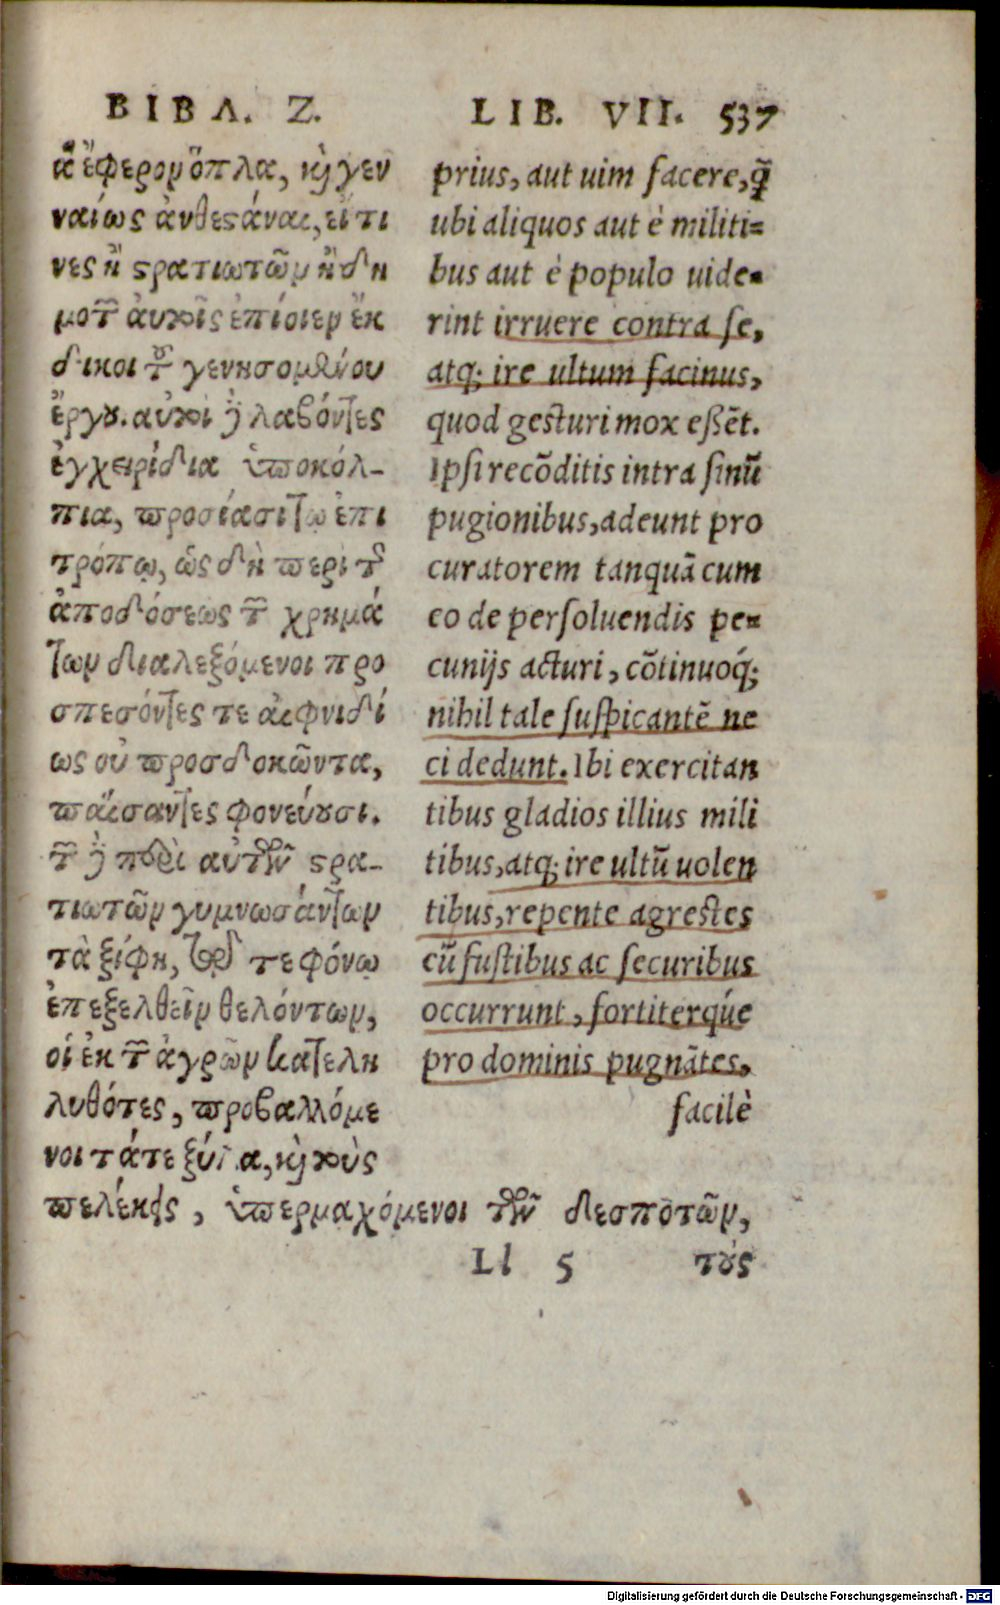 ΒΙΒΛ. Ζ.
ἃ ἔφερον ὅπλα, καὶ γεν
ναίως ἀνθεστάναι, εἴ τι
νες ἢ στρατιωτῶν ἢ δη
μοτῶν αὐτοῖς ἐπίοιεν ἔκ
δικοι τοῦ γενησομένου
ἔργου. αὐτοὶ δὲ λαβόντες
ἐγχειρίδια ὑποκόλ-
πια, προσίασι τῷ ἐπι
τρόπῳ, ὡς δὴ περὶ τῆς
ἀποδόσεως τῶν χρημά
των διαλεξόμενοι προ
σπεσόντες τε αἰφνιδί
ως οὐ προσδοκῶντα,
παίσαντες φονεύουσι.
τῶν δὲ περὶ αὐτὸν στρα-
τιωτῶν γυμνωσάντων
τὰ ξίφη, τῷ τε φόνῳ
ἐπεξελθεῖν θελόντων,
οἱ ἐκ τῶν ἀγρῶν κατελη
λυθότες, προβαλλόμε
νοι τά τε ξύλα, καὶ τοὺς
πελέκεις, ὑπερμαχόμενοι τῶν δεσποτῶν,
τοὺς
LIB. VII. 537
prius, aut uim facere, q̃
ubi aliquos aut è militi=
bus aut è populo uide=
rint irruere contra se,
atq; ire ultum facinus,
quod gesturi mox eßēt.
Ipsi recōditis intra sinū
pugionibus, adeunt pro
curatorem tanquā cum
eo de persoluendis pe=
cunijs acturi, cōtinuoq́;
nihil tale suspicantē ne
ci dedunt. Ibi exercitan
tibus gladios illius mili
tibus, atq; ire ultū uolen
tibus, repente agrestes
cū fustibus ac securibus
occurrunt, fortiterq́ue
pro dominis pugnātes,
facilè
Ll 5
Digitalisierung gefördert durch die Deutsche Forschungsgemeinschaft - DFG